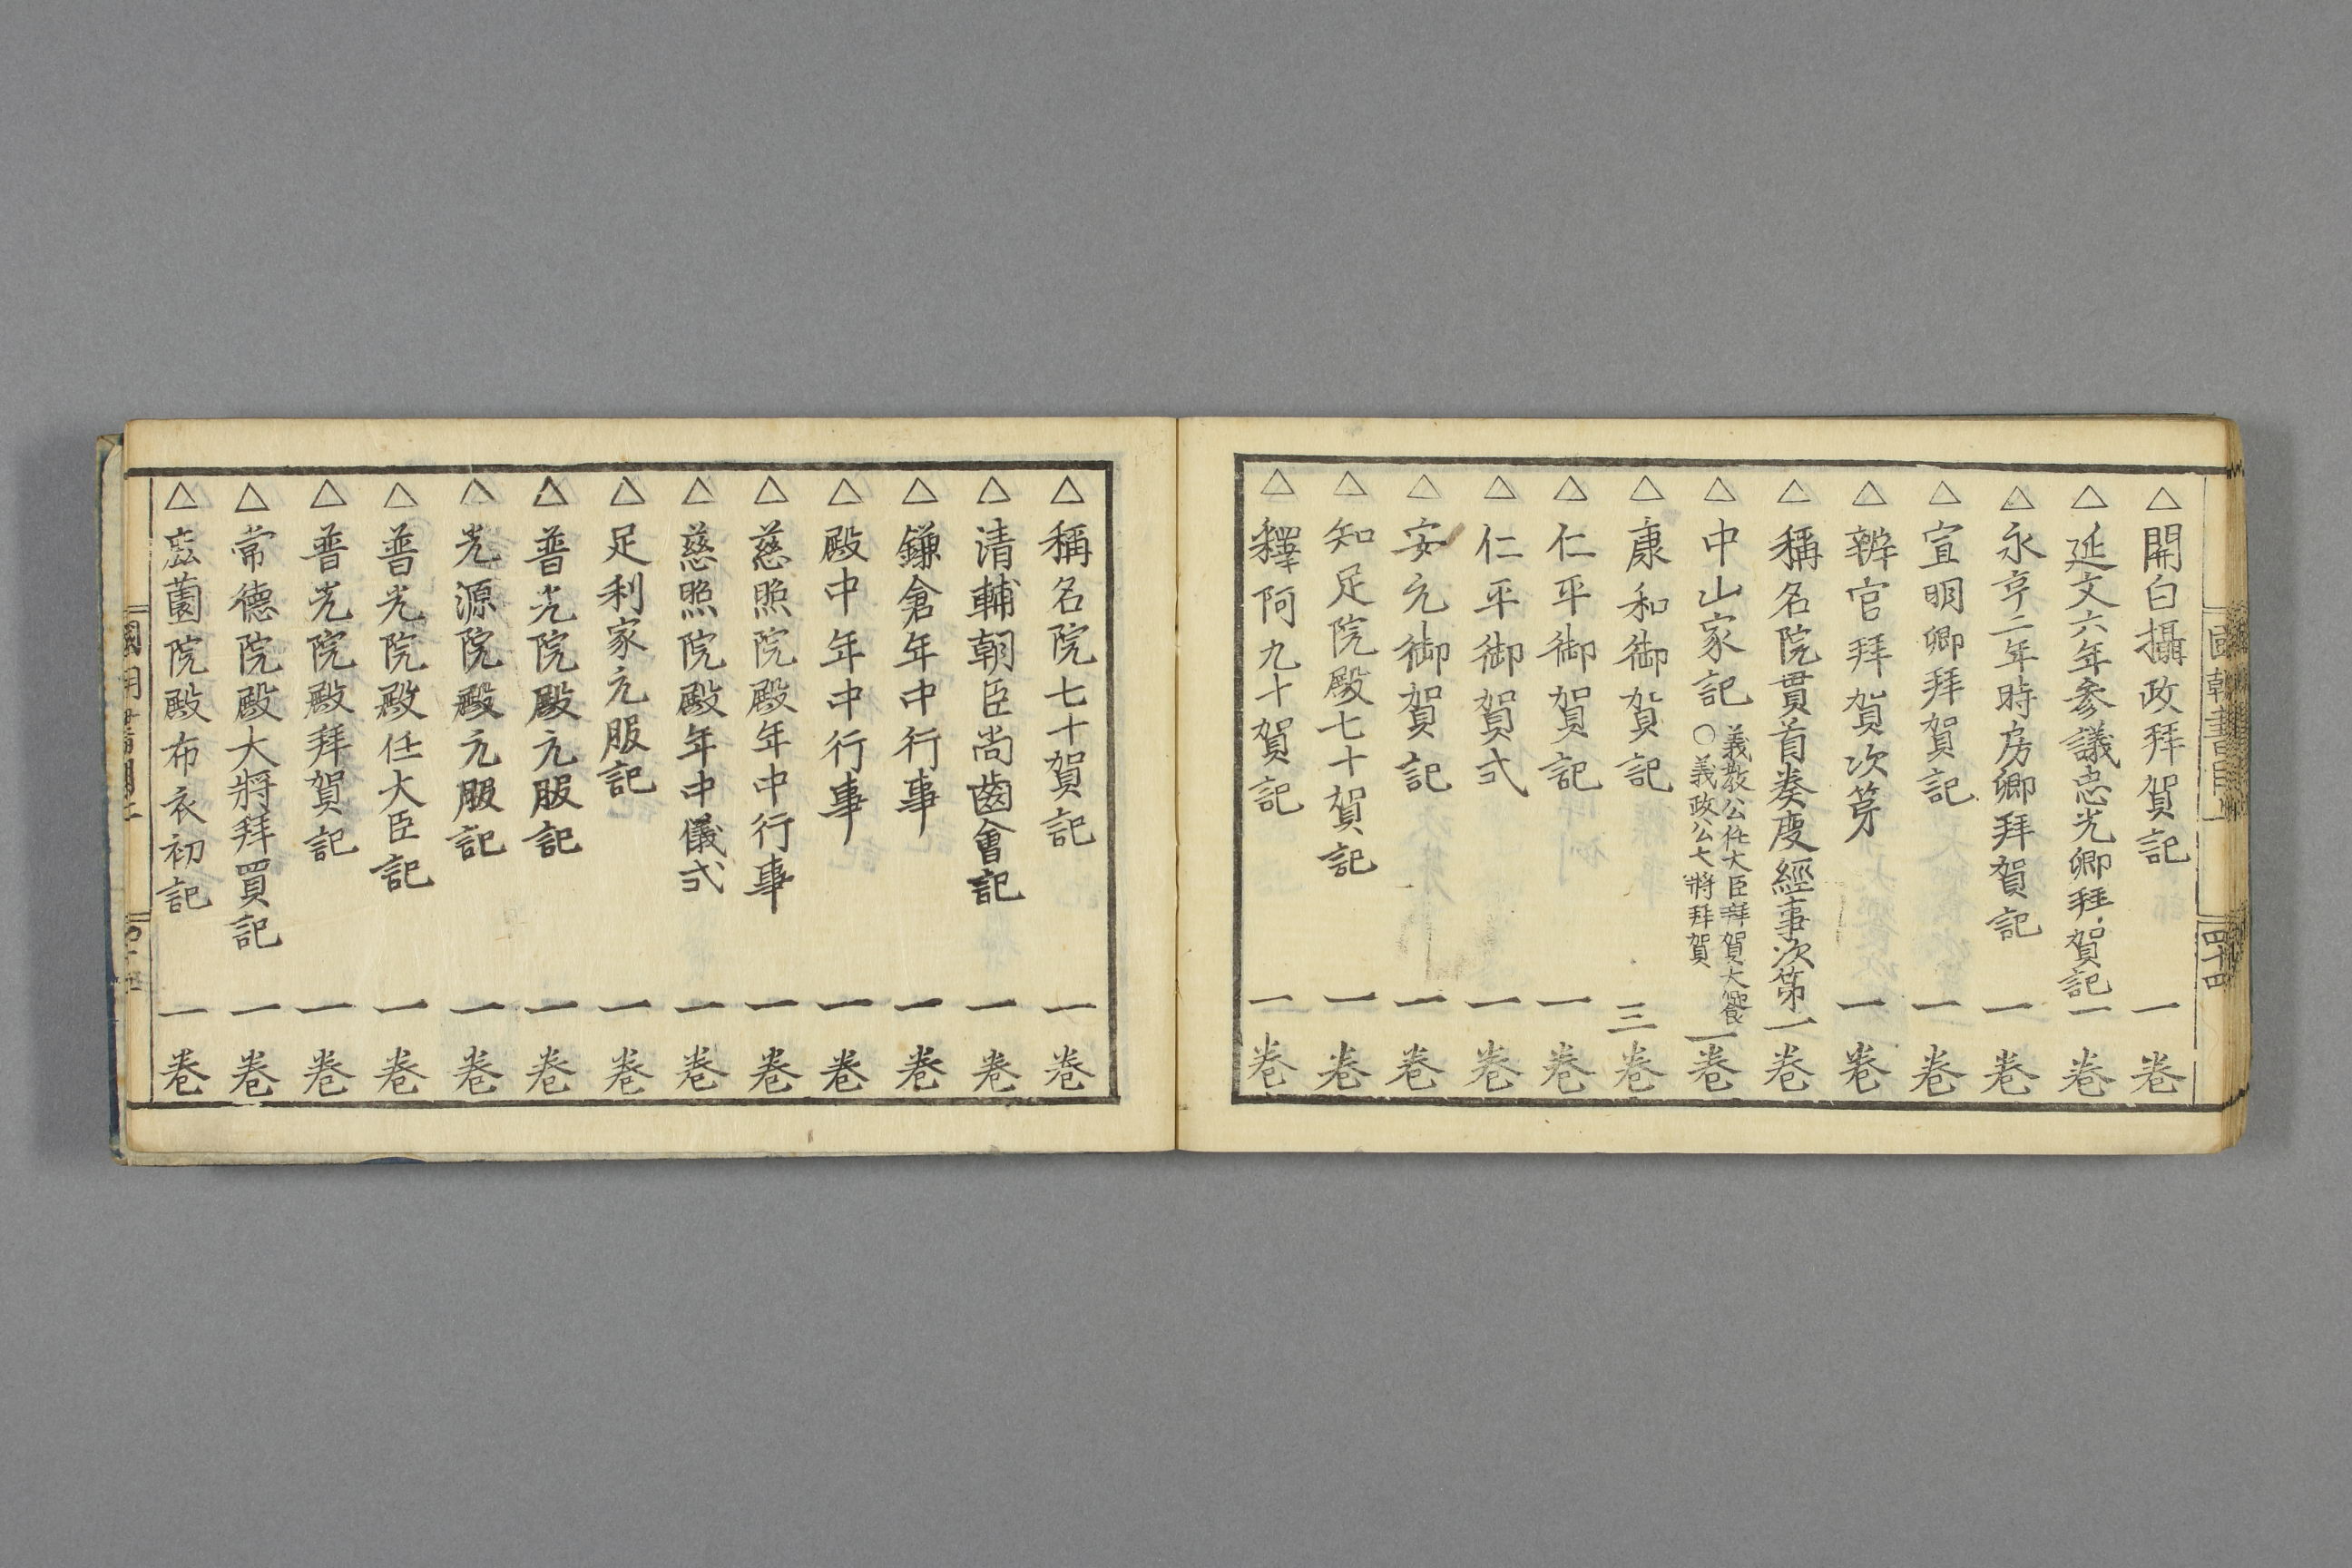 國朝書目上
四十四
△開白攝政拜賀記 一卷
△延文六年參議忠光卿拜賀記 一卷
△永亨二年時房卿拜賀記 一卷
△宣明卿拜賀記 一卷
△辨官拜賀次第 一卷
△稱名院貫首奏慶經事次第 一卷
△中山家記 義教公任大臣拜賀大饗
〇義政公大將拜賀 一卷
△康和御賀記 三卷
△仁平御賀記 一卷
△仁平御賀式 一卷
△安元御賀記 一卷
△知足院殿七十賀記 一卷
△釋阿九十賀記 一卷
△稱名院七十賀記 一卷
△清輔朝臣尚齒會記 一卷
△鎌倉年中行事 一卷
△殿中年中行事 一卷
△慈照院殿年中行事 一卷
△慈照院殿年中儀式 一卷
△足利家元服記 一卷
△普光院殿元服記 一卷
△光源院殿元服記 一卷
△普光院殿任大臣記 一卷
△普光院殿拜賀記 一卷
△常德院殿大將拜買記 一卷
△院殿布衣初記 一卷